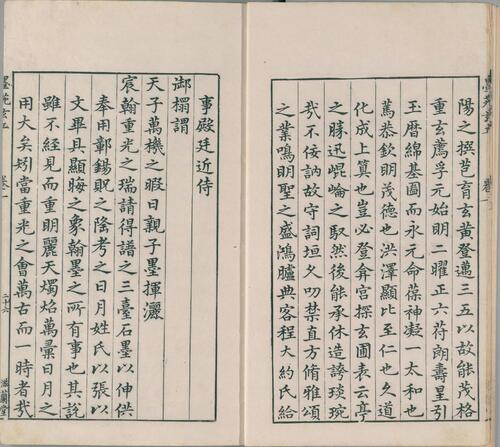 陽之撰芑育玄黄登邁三五以故能茂格
重玄薦孚元始明二曜正六苻朗壽星引
玉曆綿基圖而永元命葆神凝一太和也
篤恭欽明茂德也洪澤顯比至仁也久道
化成上算也豈必登弇宫探玄圃表云亭
之勝迅崐崘之馭然後能承休造誇琰琬
㦲不佞訥故守詞垣夂叨禁直方脩雅頌
之業鳴明聖之盛鴻臚典客程大約氏給
事殿廷近侍
御榻謂
天子萬機之暇日親子墨揮灑
宸翰重光之瑞請得譜之三臺石墨以伸供
奉用鄣錫貺之陰考之日月姓氏以張以
文畢具顯晦之象翰墨之所有事也其説
雖不經見而重明麗天燭焰萬彚日月之
用大矣矧當重光之會萬古而一時者㦲
卷一
二十六
滋蘭堂